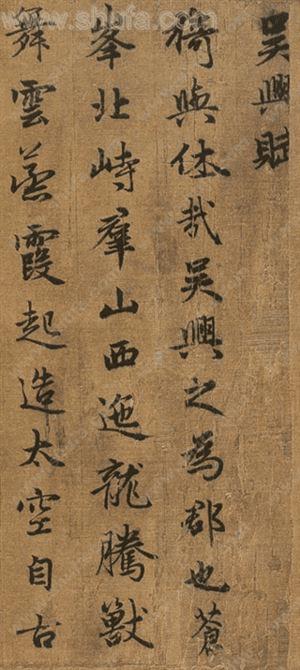 吳興賦
猗與休哉吳興之為郡也蒼
峯北峙羣山西迤龍騰獸
舞雲蒸霞起造太空自古
www.shufa.com